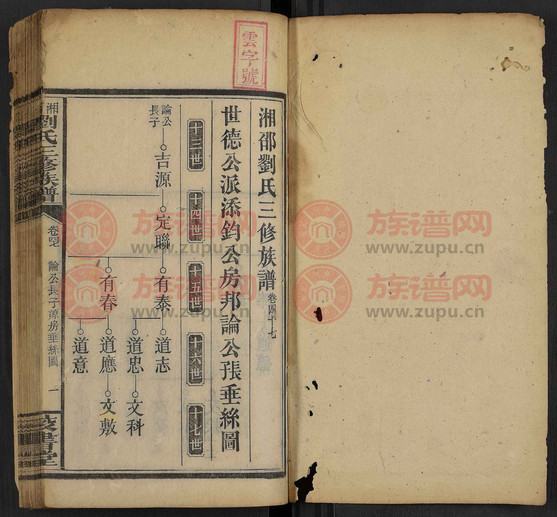 雲字號
湘邵劉氏三修族譜 卷四十七
世德公派添鈞公房邦論公張垂絲圖
十三世 十四世 十五世 十六世 十七世
論公長子 吉源 定聯 有泰 道志
道忠 文科
有春 道應 文敷
道意
湘 劉氏三修族譜
論公長子 房垂絲圖 一
書堂
族谱网
www.zupu.cn
族谱网
www.zupu.cn
族谱网
www.zupu.cn
族谱网
www.zupu.cn